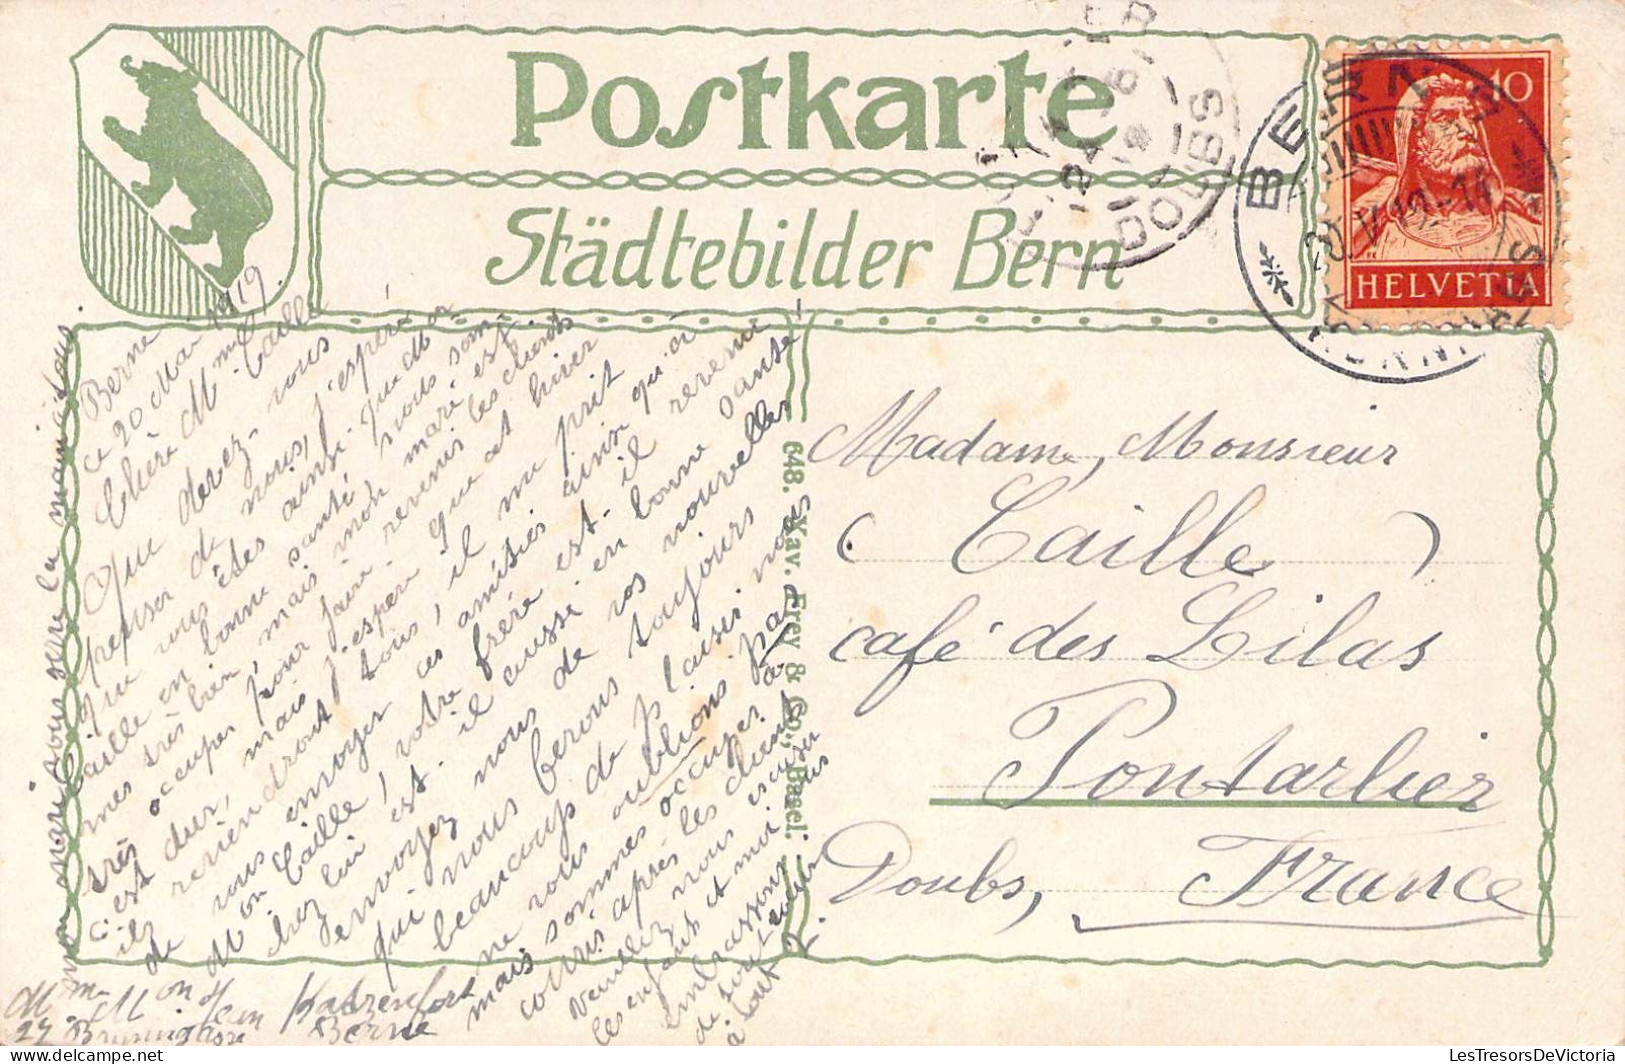 Postkarte
Städtebilder Bern
10
HELVETIA
BERN
DOUBS
648. Xav. Frey & Co., Basel.
Madame, Monsieur
(Caille)
café des Lilas
Pontarlier
Doubs, France
Berne
ce 20 Mai 1919.
Chère Mme Caille
Que devez-vous
penser de nous, j'espère
que vous êtes ainsi que Mon
Caille en bonne santé, nous som-
mes très bien, mais mon mari est
très occuper pour faire revenir les clients
c'est dur, mais j'espère que cet hiver
ils reviendront tous, il me prit
de vous envoyer ces amitiés ainsi qu'à
Mon Caille, votre frère est-il revenu
chez lui est-il aussi en bonne santé
envoyez nous de vos nouvelles
qui nous ferons toujours
beaucoup de plaisir nous
ne vous oublions pas
mais sommes occuper à
courir après les clients
veuillez nous excuser
les enfants et mon
embrassons
de tout cœur
à tout
mon mari vous serre la main à tous.
Mme Mon Jean
27 Brunngasse Berne
LesTresorsDeVictoria